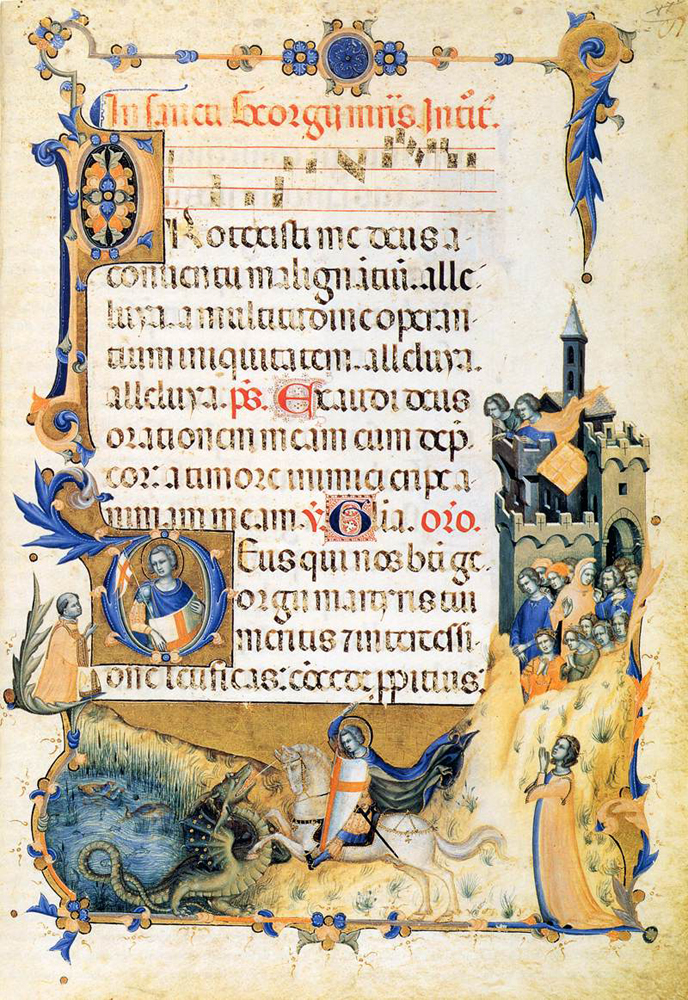 In sancti Georgii mris. Introit.
PRotexisti me deus a
conuentu malignātiū. alle-
luya. a multitudine operan-
tium iniquitatem. alleluya.
alleluya. ps. Exaudi deus
orationem meam cum dep̄-
cor: a timore inimici eripe a-
nimam meam. v. Glīa. orō.
DEus qui nos bti ge-
orgii martyris tui
meritis ⁊ intercessi-
one letificas: concede ppitius: